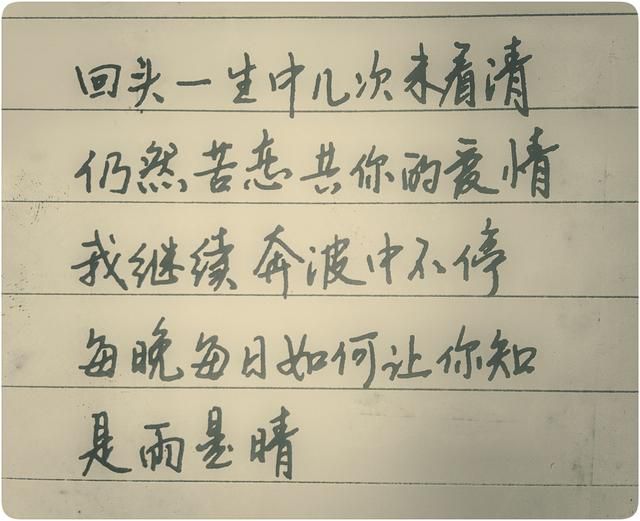 回头一生中几次未看清
仍然苦恋共你的爱情
我继续奔波中不停
每晚每日如何让你知
是雨是晴